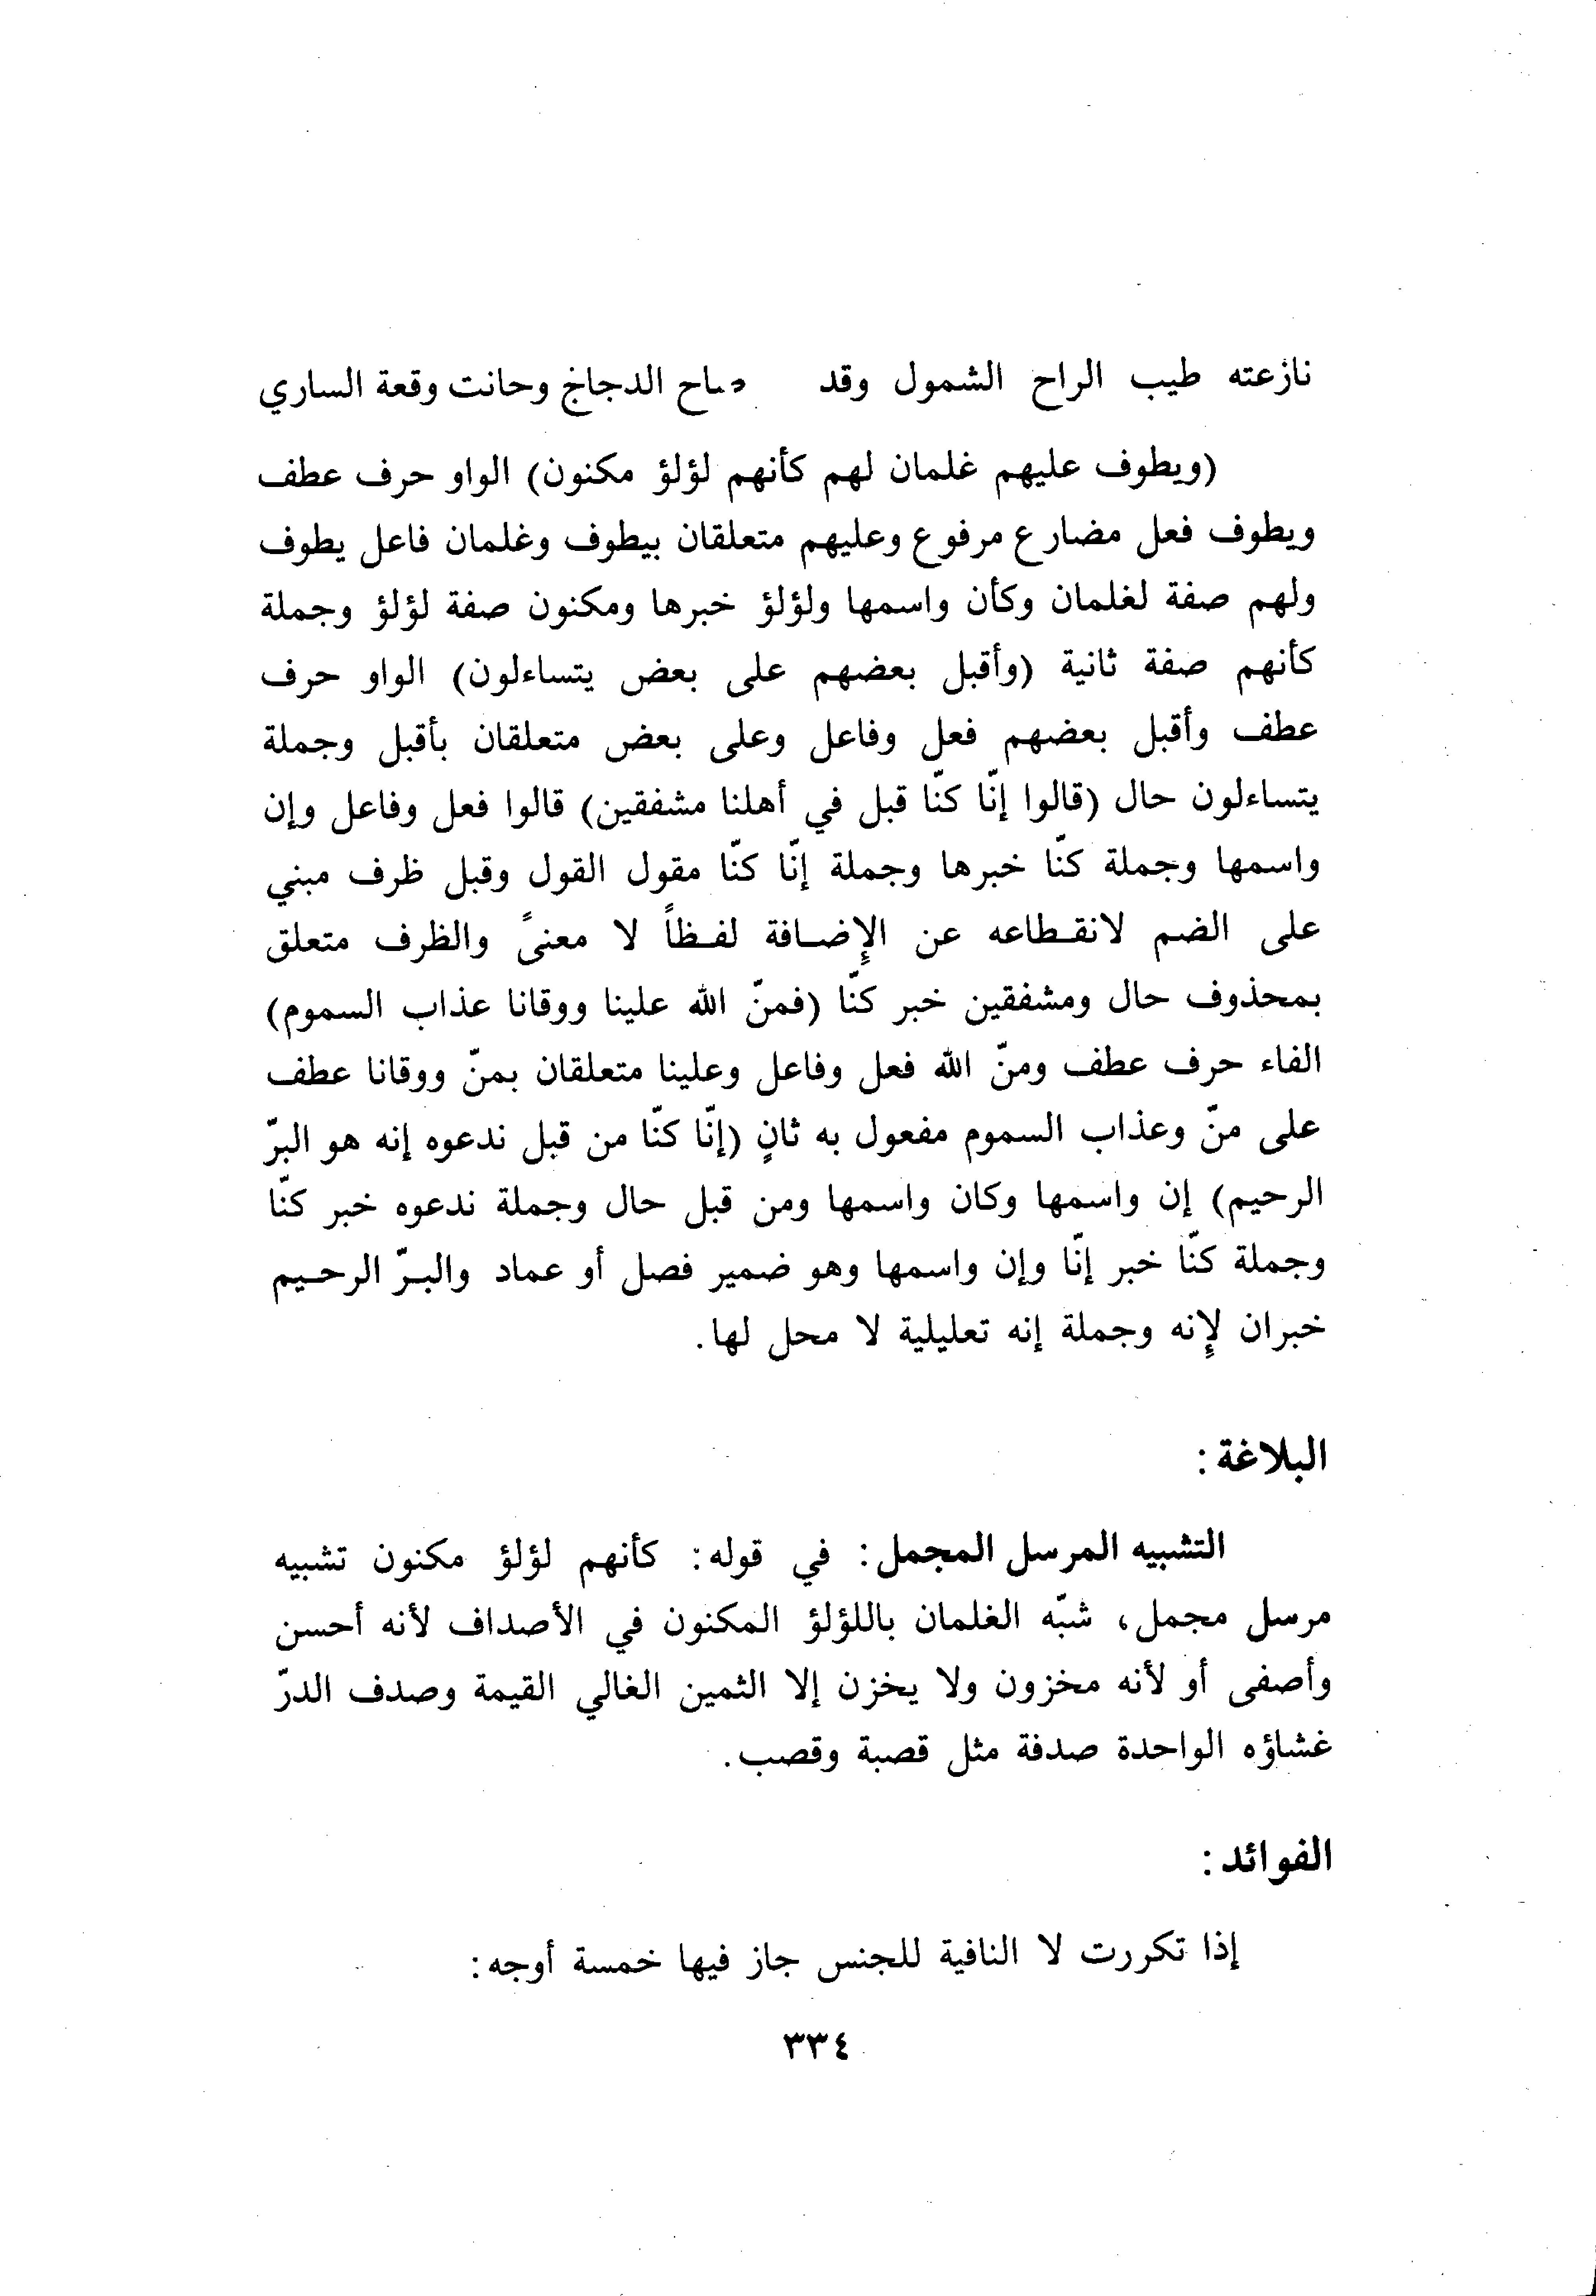 نازعته طيب الراح الشمول وقد صاح الدجاج وحانت وقعة الساري
(ويطوف عليهم غلمان لهم كأنهم لؤلؤ مكنون) الواو حرف عطف
ويطوف فعل مضارع مرفوع وعليهم متعلقان بيطوف وغلمان فاعل يطوف
ولهم صفة لغلمان وكأن واسمها ولؤلؤ خبرها ومكنون صفة لؤلؤ وجملة
كأنهم صفة ثانية (وأقبل بعضهم على بعض يتساءلون) الواو حرف
عطف وأقبل بعضهم فعل وفاعل وعلى بعض متعلقان بأقبل وجملة
يتساءلون حال (قالوا إنّا كنّا قبل في أهلنا مشفقين) قالوا فعل وفاعل وإن
واسمها وجملة كنّا خبرها وجملة إنّا كنّا مقول القول وقبل ظرف مبني
على الضم لانقطاعه عن الإضافة لفظاً لا معنىً والظرف متعلق
بمحذوف حال ومشفقين خبر كنّا (فمنّ الله علينا ووقانا عذاب السموم)
الفاء حرف عطف ومنّ الله فعل وفاعل وعلينا متعلقان بمنّ ووقانا عطف
على منّ وعذاب السموم مفعول به ثانٍ (إنّا كنّا من قبل ندعوه إنه هو البرّ
الرحيم) إن واسمها وكان واسمها ومن قبل حال وجملة ندعوه خبر كنّا
وجملة كنّا خبر إنّا وإن واسمها وهو ضمير فصل أو عماد والبرّ الرحيم
خبران لإنه وجملة إنه تعليلية لا محل لها.
البلاغة:
التشبيه المرسل المجمل: في قوله: كأنهم لؤلؤ مكنون تشبيه
مرسل مجمل، شبّه الغلمان باللؤلؤ المكنون في الأصداف لأنه أحسن
وأصفى أو لأنه مخزون ولا يخزن إلا الثمين الغالي القيمة وصدف الدرّ
غشاؤه الواحدة صدفة مثل قصبة وقصب.
الفوائد:
إذا تكررت لا النافية للجنس جاز فيها خمسة أوجه:
٣٣٤